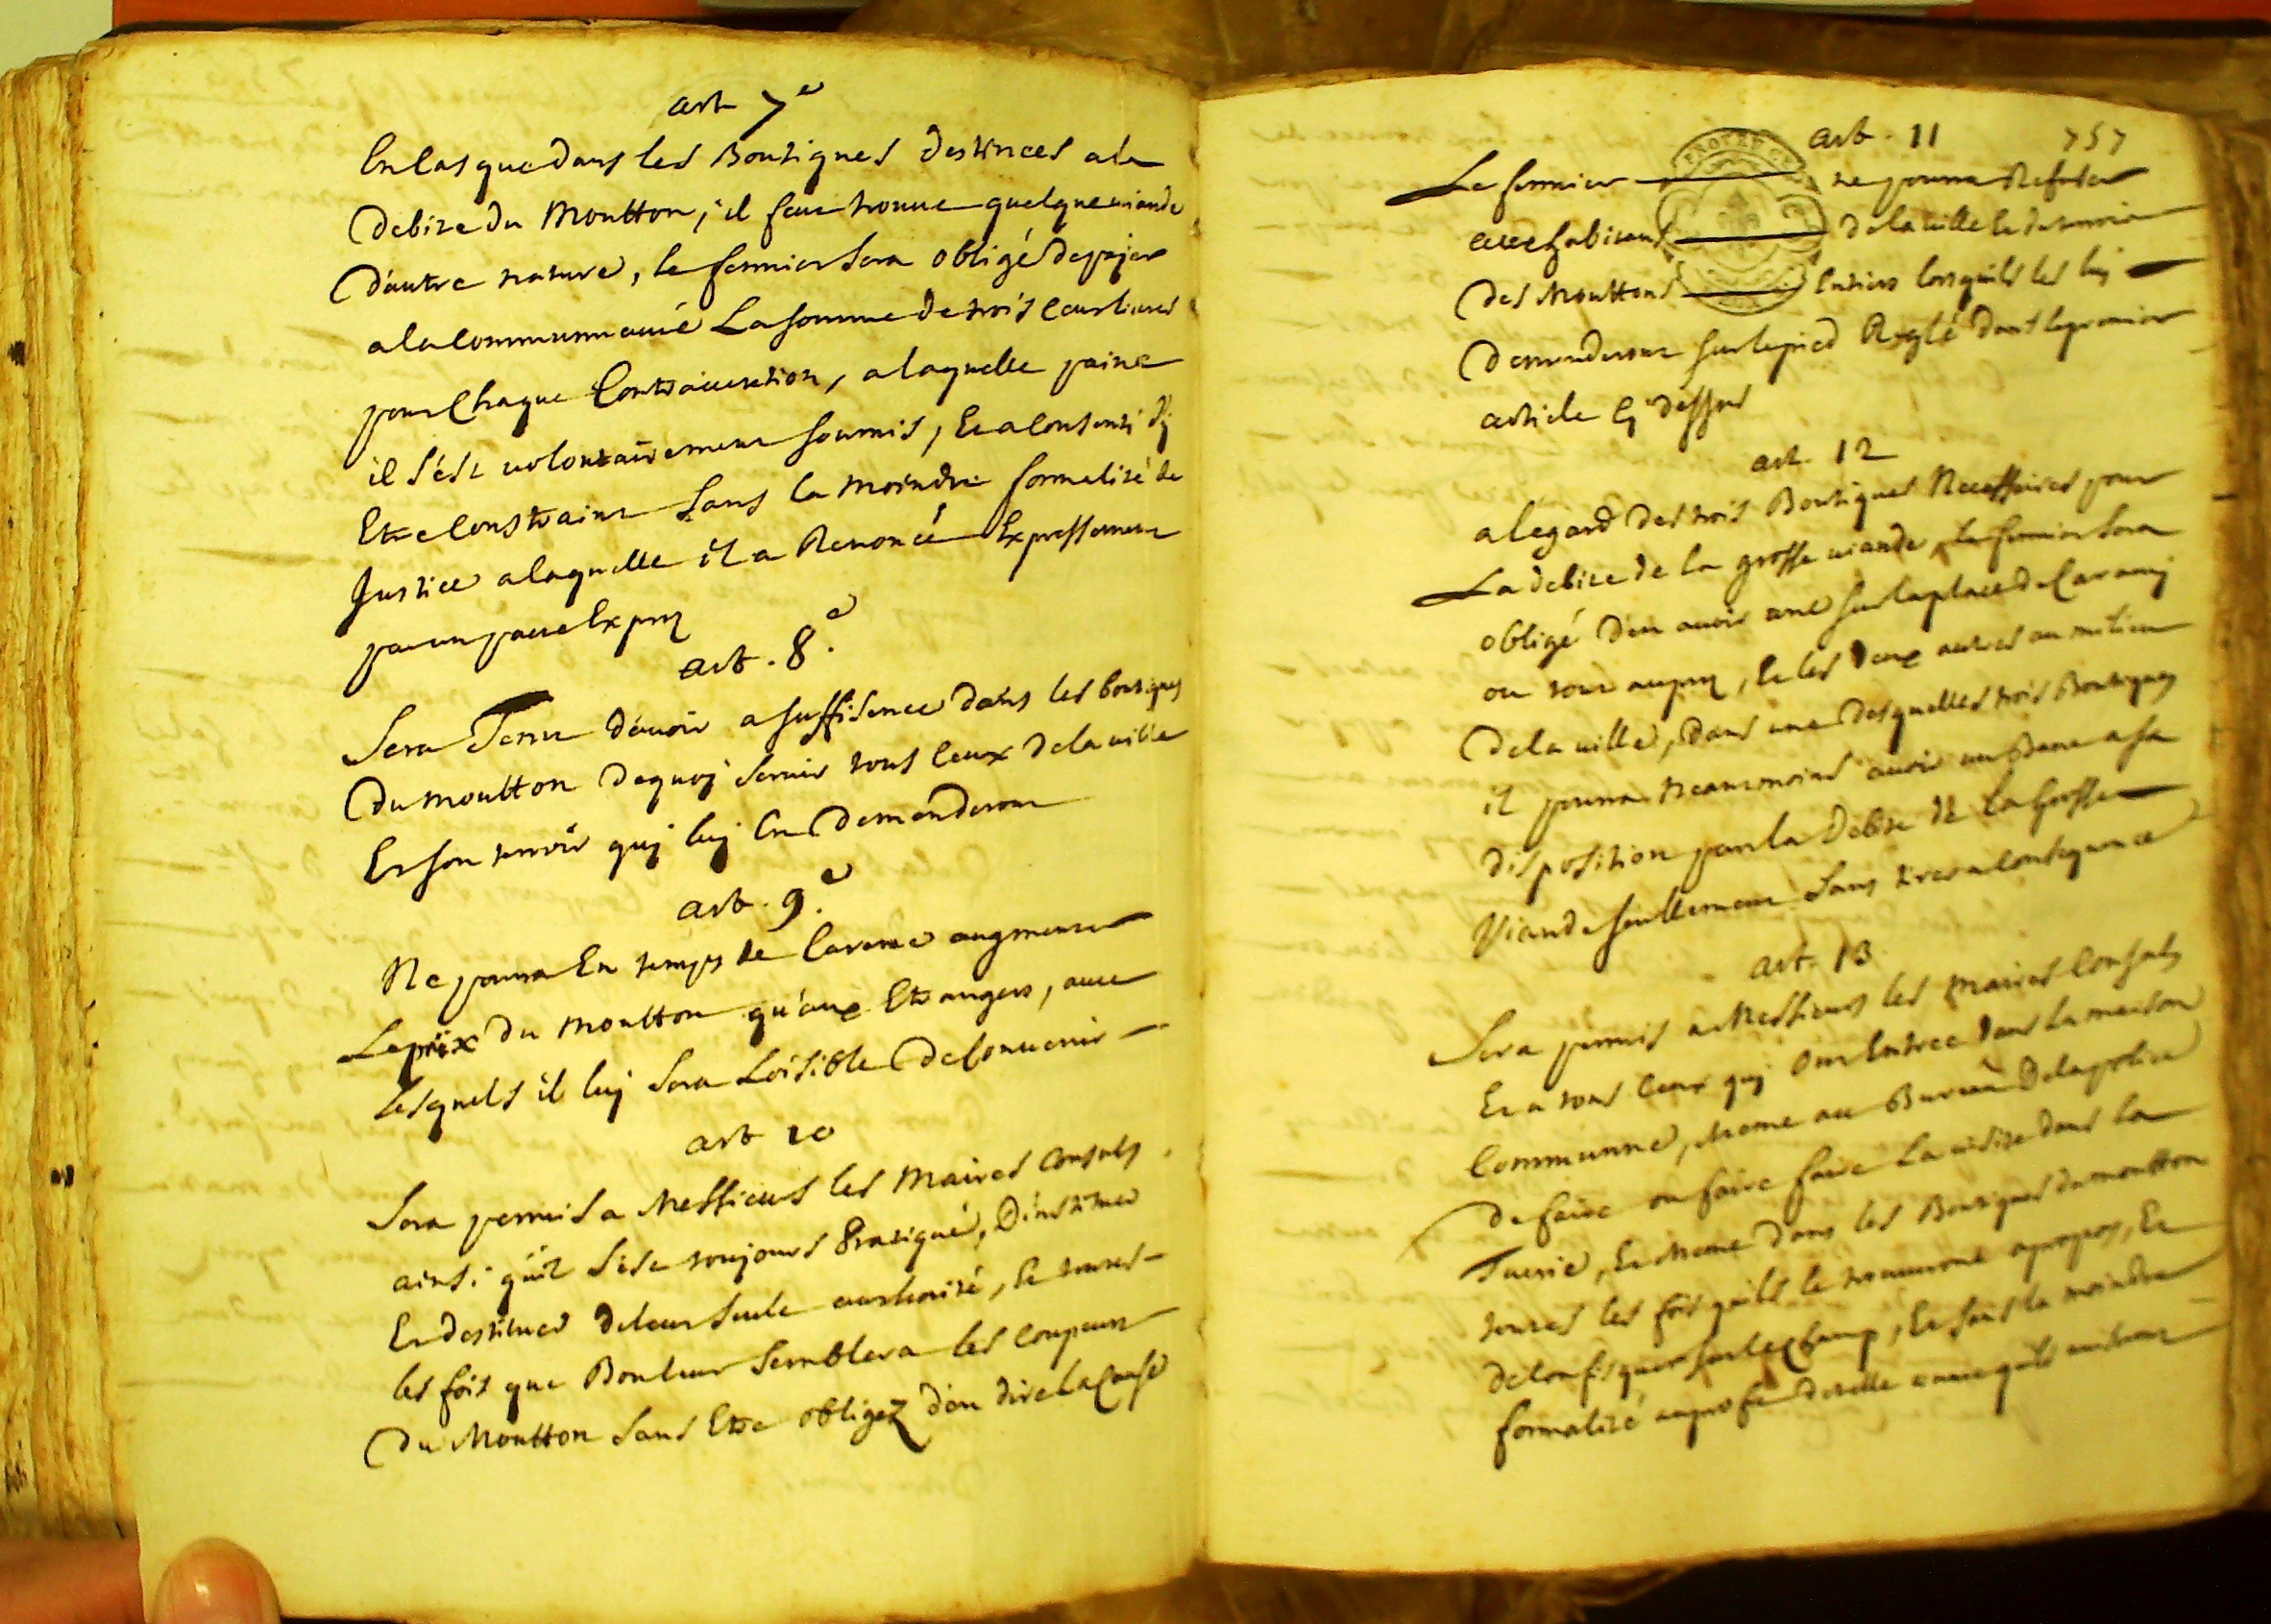 art 7e
En cas que dans les Boutiques destinees a la
debite du Moutton, il feut trouue quelque uiande
d'autre nature, le fermier sera obligé de pajer
a la communnauté La somme de trois cens liures
pour Chaque Contrauention, a laquelle paine
il s'est uolontairement soumis, Et a consenti d'j
Etre Constraint sans la moindre formalité de
Justice a laquelle il a Renoncé Expressement
par un pacte Exprez
art. 8.e
Sera Tenu d'auoir a suffisence dans les boutiques
du moutton dequoj seruir tous Ceux de la uille
Et son terroir quj luj En demanderont
art. 9.e
Ne pourra En temps de Careme augmenter
Le prix du moutton qu'aux Etrangers, auec
Lesquels il luj sera Loisible de Conuenir
art 10
Sera permis a Messieurs les Maires Consuls
ainsi qu'il s'est toujours Pratiqué, D'instituer
Et destituer de leur seule authorité, Et toutes
les fois que Bon leur semblera les Coupeurs
du Moutton sans Etre obligez d'en dire la Cause
757
art. 11
Le fermier ne pourra Refuser
aux habitans de la uille Le
des Mouttons Entiers lors qu'ils les luj
demanderont sur le pied Reglé dans le premier
article cj dessus
art. 12
a legard des trois Boutiques Necessaires pour
La debite de la grosse uiande, Le fermier sera
obligé d'en auoir une sur la place de Caramj
ou tout auprez, Et les deux autres au milieu
de la uille, dans une desquelles trois Boutiques
il pourra neantmoins auoir un Banc a sa
disposition pour la debite de La Grosse
Viande seullement sans tirer a Consequance
art. 13
Sera permis a Messieurs les Maires Consuls
Et a tous Ceux quj ont Entree dans la maison
Commune, Meme au Bureau de la police
de faire ou faire faire La uisite dans la
Tuerie, Et Meme dans les Boutiques du moutton
toutes les fois qu'ils le trouueront apropos, Et
de Confisquer sur le Champ, Et sans la moindre
formalité au profit de celle